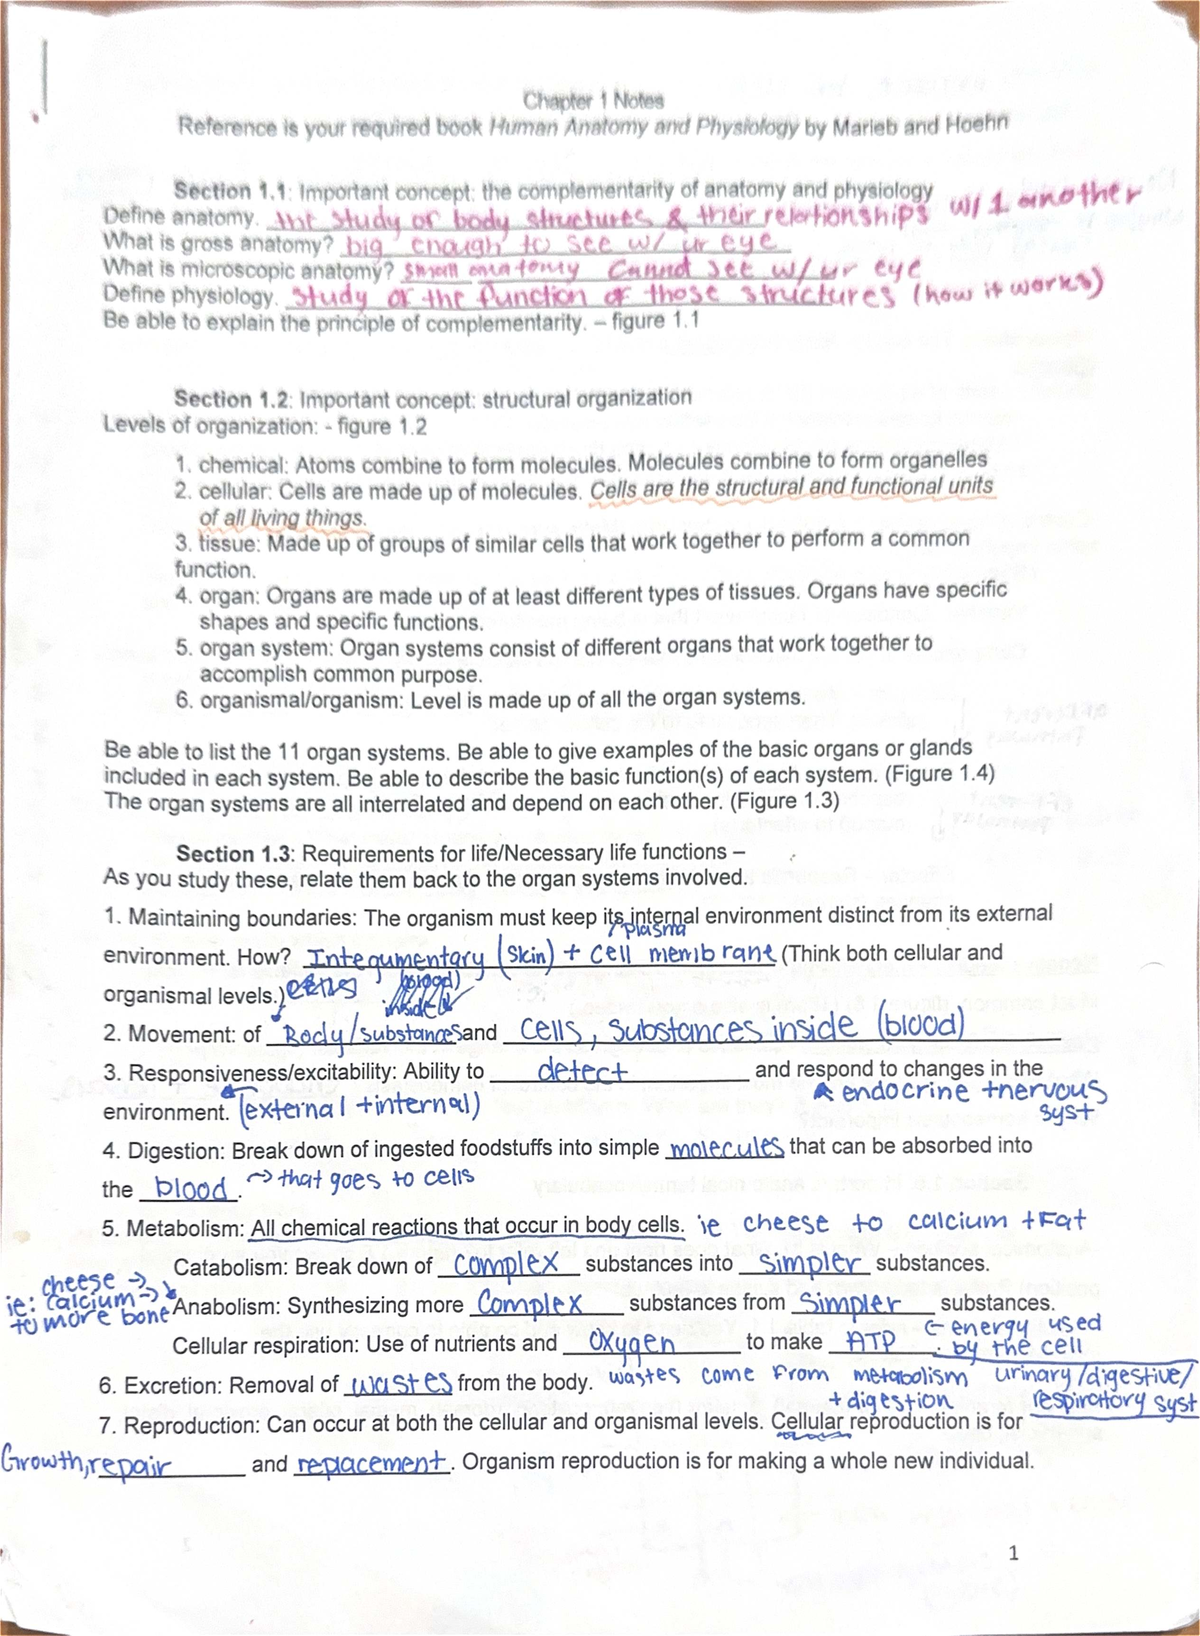 Chapter 1 Notes
Reference is your required book Human Anatomy and Physiology by Marieb and Hoehn
Section 1.1: Important concept: the complementarity of anatomy and physiology
Define anatomy. the study of body structures & their relationships w/ 1 another
What is gross anatomy? big enough to see w/ ur eye
What is microscopic anatomy? small anatomy cannot see w/ ur eye
Define physiology. study of the function of those structures (how it works)
Be able to explain the principle of complementarity. – figure 1.1
Section 1.2: Important concept: structural organization
Levels of organization: - figure 1.2
1. chemical: Atoms combine to form molecules. Molecules combine to form organelles
2. cellular: Cells are made up of molecules. Cells are the structural and functional units
of all living things.
3. tissue: Made up of groups of similar cells that work together to perform a common
function.
4. organ: Organs are made up of at least different types of tissues. Organs have specific
shapes and specific functions.
5. organ system: Organ systems consist of different organs that work together to
accomplish common purpose.
6. organismal/organism: Level is made up of all the organ systems.
Be able to list the 11 organ systems. Be able to give examples of the basic organs or glands
included in each system. Be able to describe the basic function(s) of each system. (Figure 1.4)
The organ systems are all interrelated and depend on each other. (Figure 1.3)
Section 1.3: Requirements for life/Necessary life functions –
As you study these, relate them back to the organ systems involved.
1. Maintaining boundaries: The organism must keep its internal environment distinct from its external
/plasma
environment. How? Integumentary (skin) + cell membrane (Think both cellular and
organismal levels.) cells (blood)
inside
2. Movement: of Body/substances and cells, substances inside (blood)
3. Responsiveness/excitability: Ability to detect and respond to changes in the
environment. (external + internal) endocrine + nervous
syst
4. Digestion: Break down of ingested foodstuffs into simple molecules that can be absorbed into
the blood. → that goes to cells
5. Metabolism: All chemical reactions that occur in body cells. ie cheese to calcium + Fat
Catabolism: Break down of complex substances into simpler substances.
cheese →
ie: calcium →
to more bone
Anabolism: Synthesizing more complex substances from simpler substances.
← energy used
by the cell
Cellular respiration: Use of nutrients and oxygen to make ATP.
6. Excretion: Removal of wastes from the body. wastes come from metabolism urinary/digestive/
+ digestion respiratory syst
7. Reproduction: Can occur at both the cellular and organismal levels. Cellular reproduction is for
Growth, repair and replacement. Organism reproduction is for making a whole new individual.
1